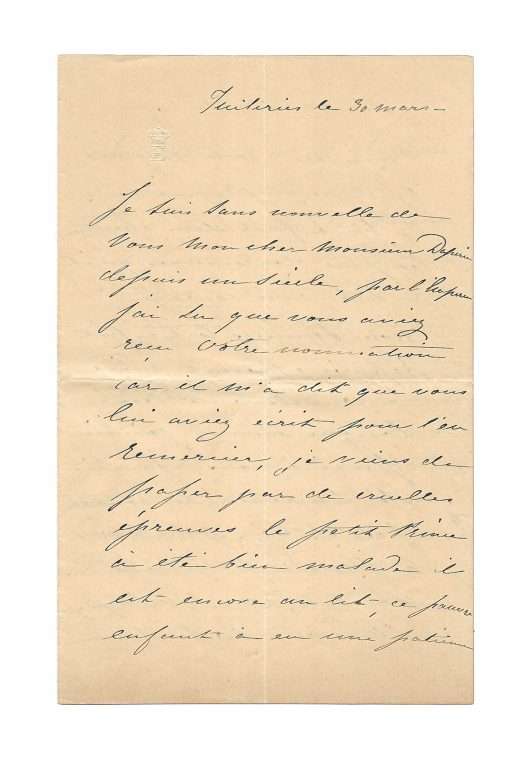 Tuileries le 30 mars
Je suis sans nouvelle de
Vous mon cher Monsieur
depuis un siècle, par l'Empereur
j'ai su que vous aviez
recu votre nomination
car il m'a dit que vous
lui aviez écrit pour l'en
remercier, je viens de
passer par de cruelles
épreuves le petit Prince
à été bien malade il
est encore au lit, ce pauvre
enfant à eu une patience